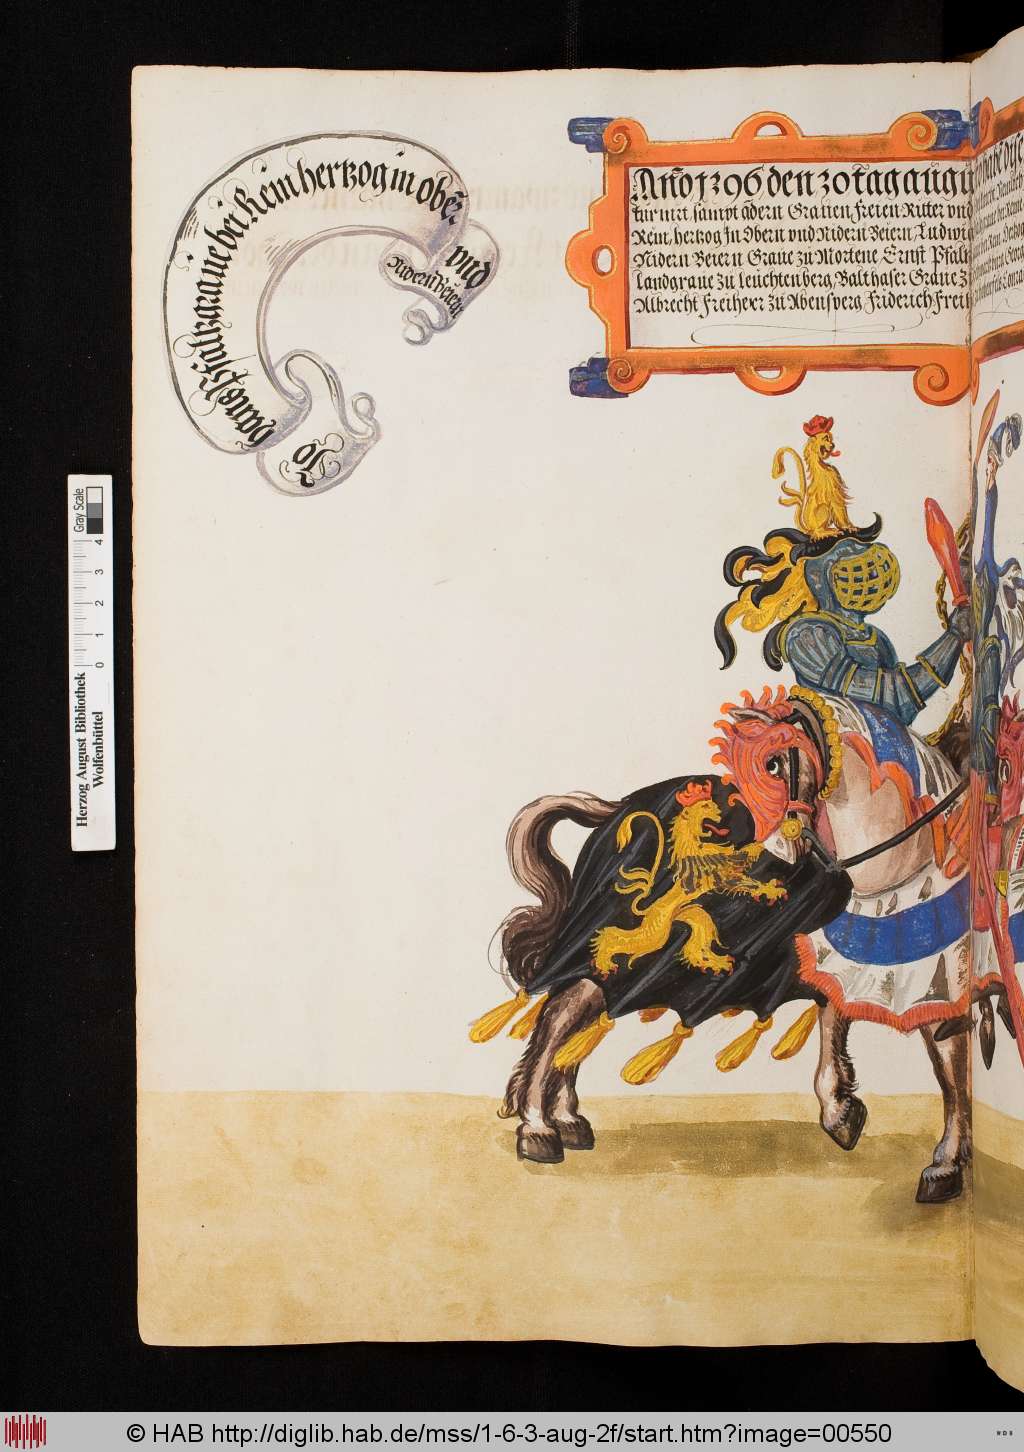 Jo
hans Pfaltzgraue bei Reim hertzog in obern
vnd
Nidern Beiern
Año 1296 den 20 tag augu
tur mit sampt ãdern Grauen Freien Ritter vnd
Reim, hertzog Jn Obern vnd Nidern Beiern, Ludwi
Nidern Beiern Graue zu Mortene Ernst Pfalt
landgraue zu leuchtenberg, Balthaser Graue z
Albrecht Freiherr zu Abensperg Friderich Freih
Herzog August Bibliothek
Wolfenbüttel
0 1 2 3 4
Gray Scale
© HAB http://diglib.hab.de/mss/1-6-3-aug-2f/start.htm?image=00550